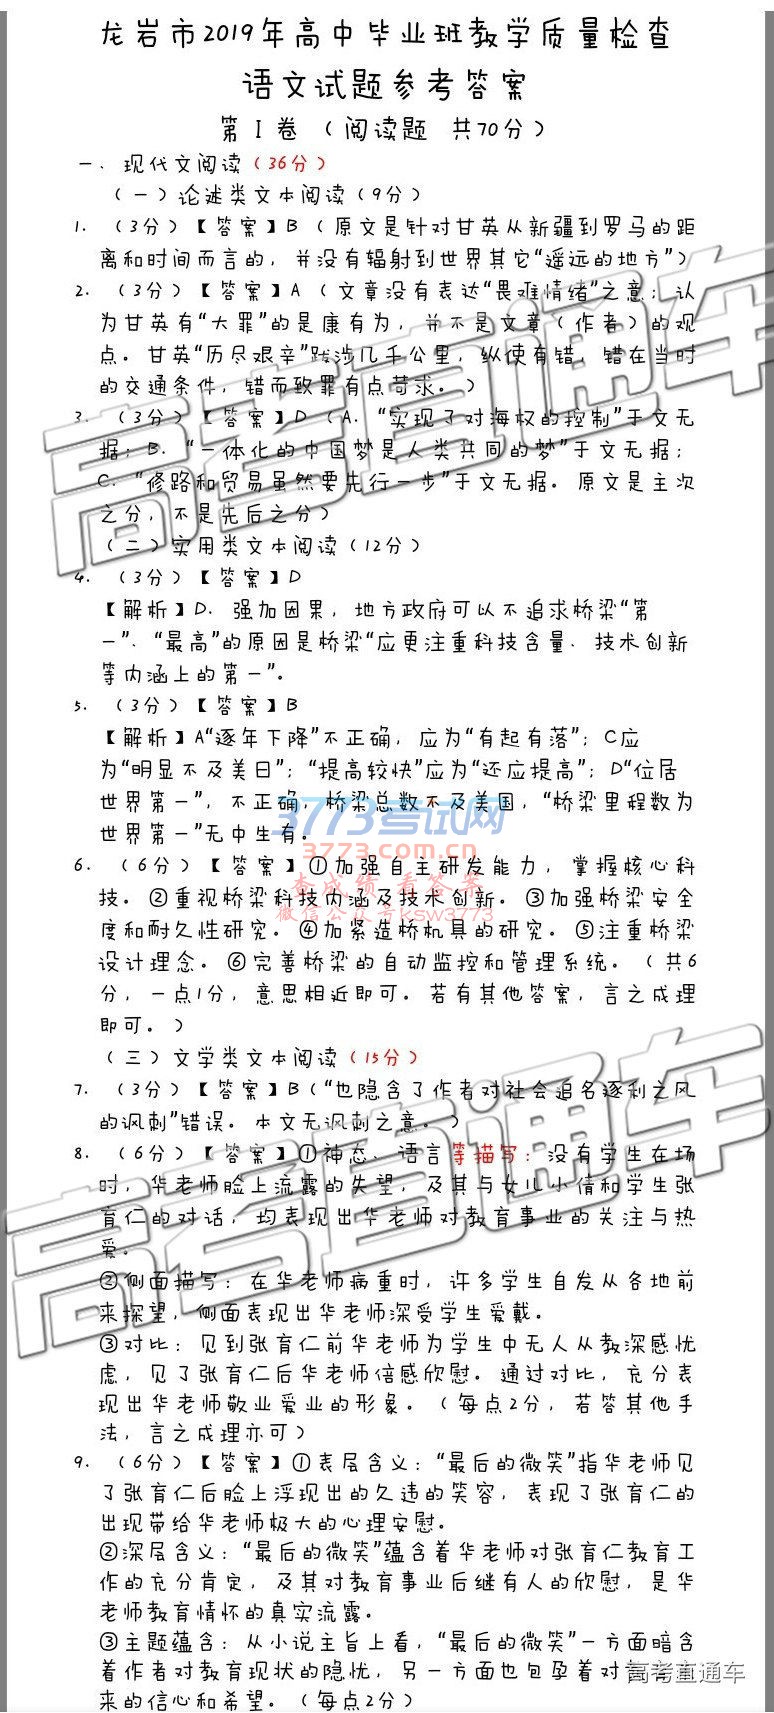 龙岩市2019年高中毕业班教学质量检查
语文试题参考答案
第Ⅰ卷（阅读题 共70分）
一、现代文阅读（36分）
（一）论述类文本阅读（9分）
1.（3分）【答案】B（原文是针对甘英从新疆到罗马的距
离和时间而言的，并没有辐射到世界其它“遥远的地方”）
2.（3分）【答案】A（文章没有表达“畏难情绪”之意；认
为甘英有“大罪”的是康有为，并不是文章（作者）的观
点。甘英“历尽艰辛”跋涉几千公里，纵使有错，错在当时
的交通条件，错而致罪有点苛求。）
3.（3分）【答案】D（A.“实现了对海权的控制”于文无
据；B.“一体化的中国梦是人类共同的梦”于文无据；
C.“修路和贸易虽然要先行一步”于文无据。原文是主次
之分，不是先后之分）
（二）实用类文本阅读（12分）
4.（3分）【答案】D
【解析】D.强加因果，地方政府可以不追求桥梁“第
一”、“最高”的原因是桥梁“应更注重科技含量、技术创新
等内涵上的第一”。
5.（3分）【答案】B
【解析】A“逐年下降”不正确，应为“有起有落”；C应
为“明显不及美日”；“提高较快”应为“还应提高”；D“位居
世界第一”，不正确，桥梁总数不及美国，“桥梁里程数为
世界第一”无中生有。
6.（6分）【答案】①加强自主研发能力，掌握核心科
技。②重视桥梁科技内涵及技术创新。③加强桥梁安全
度和耐久性研究。④加紧造桥机具的研究。⑤注重桥梁
设计理念。⑥完善桥梁的自动监控和管理系统。（共6
分，一点1分，意思相近即可。若有其他答案，言之成理
即可。）
（三）文学类文本阅读（15分）
7.（3分）【答案】B（“也隐含了作者对社会追名逐利之风
的讽刺”错误。本文无讽刺之意。）
8.（6分）【答案】①神态、语言等描写：没有学生在场
时，华老师脸上流露的失望，及其与女儿小倩和学生张
育仁的对话，均表现出华老师对教育事业的关注与热
爱。
②侧面描写：在华老师病重时，许多学生自发从各地前
来探望，侧面表现出华老师深受学生爱戴。
③对比：见到张育仁前华老师为学生中无人从教深感忧
虑，见了张育仁后华老师倍感欣慰。通过对比，充分表
现出华老师敬业爱业的形象。（每点2分，若答其他手
法，言之成理亦可）
9.（6分）【答案】①表层含义：“最后的微笑”指华老师见
了张育仁后脸上浮现出的久违的笑容，表现了张育仁的
出现带给华老师极大的心理安慰。
②深层含义：“最后的微笑”蕴含着华老师对张育仁教育工
作的充分肯定，及其对教育事业后继有人的欣慰，是华
老师教育情怀的真实流露。
③主题蕴含：从小说主旨上看，“最后的微笑”一方面暗含
着作者对教育现状的隐忧，另一方面也包孕着对
来的信心和希望。（每点2分）
高考直通车
高考直通车
3773考试网
3773.com.cn
查成绩 看答案
微信公众号ksw3773
高考直通车